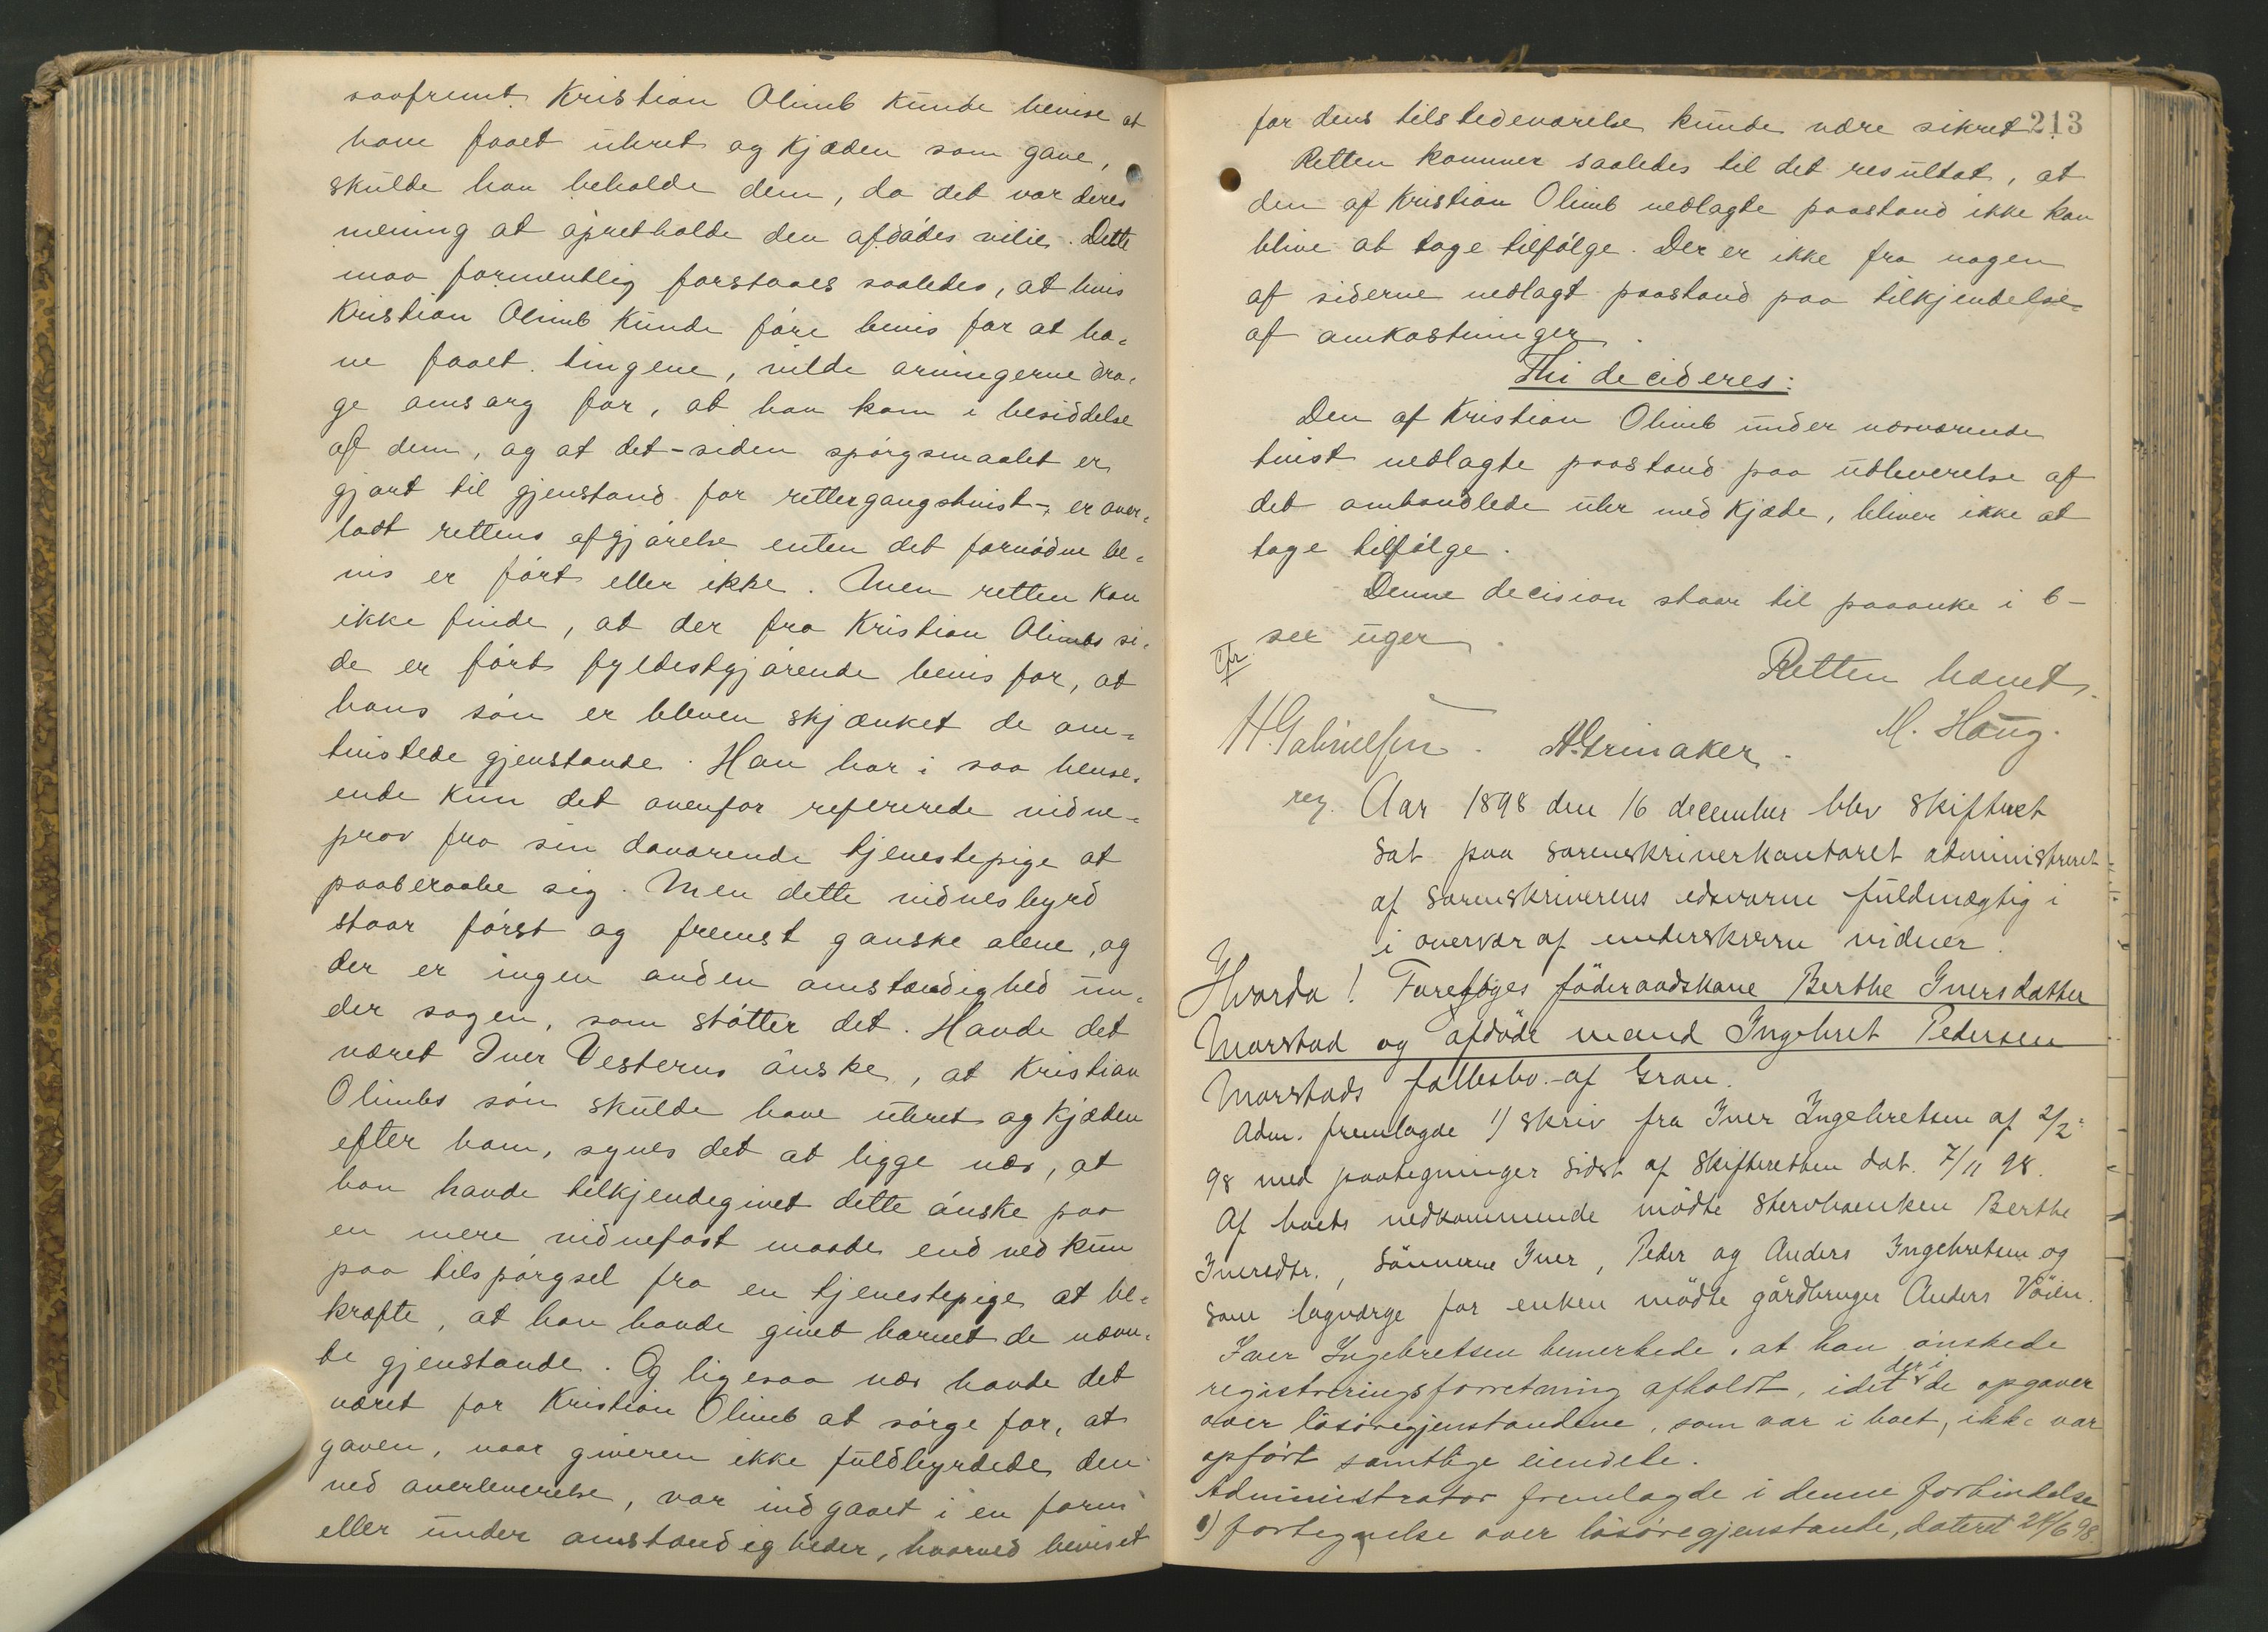 saafremt Kristian Olimb kunde bevise at
have faaet uhret og kjæden som gave,
skulde han beholde dem, da det var deres
mening at opretholde den afdødes vilie. Dette
maa formentlig forstaaes saaledes, at hvis
Kristian Olimb kunde føre bevis for at ha-
ve faaet tingene, vilde arvingerne dra-
ge omsorg for, at han kom i besiddelse
af dem, og at det - siden spørgsmaalet er
gjort til gjenstand for rettergangstvist -, er over-
ladt rettens afgjørelse enten det fornødne be-
vis er ført eller ikke. Men retten kan
ikke finde, at der fra Kristian Olimbs si-
de er ført fyldestgjørende bevis for, at
hans søn er bleven skjænket de om-
tvistede gjenstande. Han har i saa hense-
ende kun det ovenfor refererede vidne-
prov fra sin daværende tjenestepige at
paaberaabe sig. Men dette vidnesbyrd
staar først og fremst ganske alene, og
der er ingen anden omstændighed un-
der sagen, som støtter det. Havde det
været Iver Vesterns ønske, at Kristian
Olimbs søn skulde have uhret og kjæden
efter ham, synes det at ligge nær, at
han havde tilkjendegivet dette ønske paa
en mere vidnefast maade end ved kun
paa tilspørgsel fra en tjenestepige at be-
kræfte, at han havde givet barnet de nævn-
te gjenstande. Og ligesaa nær havde det
været for Kristian Olimb at sørge for, at
gaven, naar giveren ikke fuldbyrdede den
ved overleverelse, var indgaaet i en form
eller under omstændigheder, hvorved beviset
213
for dens tilstedeværelse kunde være sikret.
Retten kommer saaledes til det resultat, at
den af Kristian Olimb nedlagte paastand ikke kan
blive at tage tilfølge. Der er ikke fra nogen
af siderne nedlagt paastand paa tilkjendelse
af omkostninger.
Thi decideres:
Den af Kristian Olimb under nærværende
tvist nedlagte paastand paa udleverelse af
det omhandlede uhr med kjæde, bliver ikke at
tage tilfølge.
Denne decision staar til paaanke i 6 -
sex uger.
Cfr.
Retten hævet.
M. Haug.
H. Gabrielsen. A. Grinaker.
reg. Aar 1898 den 16 december blev skifteret
sat paa sorenskriverkontoret administreret
af sorenskriverens edsvorne fuldmægtig i
i overvær af underskrevne vidner.
Hvorda! Foretoges føderaadskone Berthe Iversdatter
Morstad og afdøde mand Ingebret Pedersen
Morstads fællesbo. af Gran.
Adm. fremlagde 1) skriv fra Iver Ingebretsen af 2/2
98 med paategninger sidst af skifteretten dat. 7/11 98.
Af boets vedkommende mødte stervboenken Berthe
Iversdtr., sønnerne Iver, Peder og Anders Ingebretsen og
som lagværge for enken mødte gårdbruger Anders Vøien.
Iver Ingebretsen bemerkede, at han ønskede
registreringsforretning afholdt, idet der i de opgaver
over løsøregjenstandene, som var i boet, ikke var
opført samtlige eiendele.
Administrator fremlagde i denne forbindelse
fortegnelse over løsøregjenstande, dateret 24/6 98.